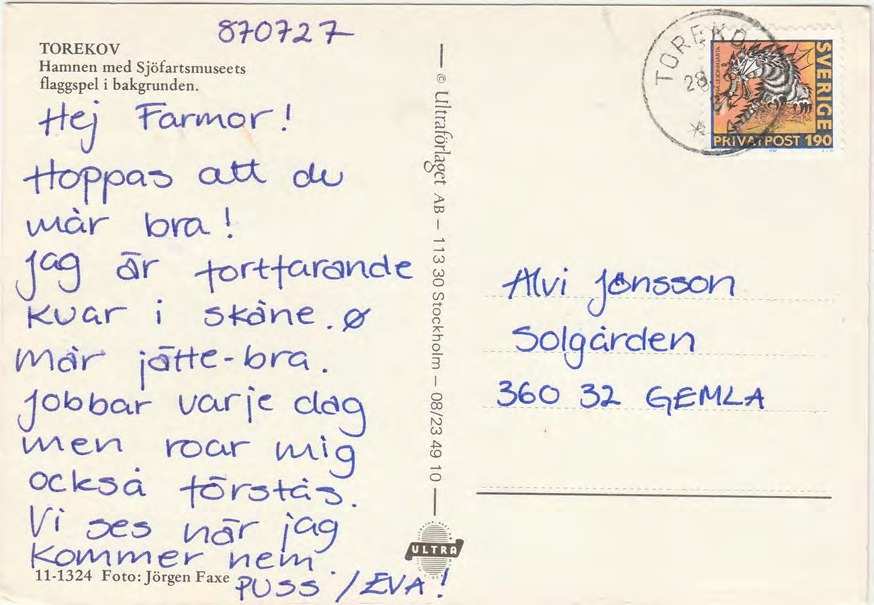 870727
TOREKOV
Hamnen med Sjöfartsmuseets
flaggspel i bakgrunden.
Hej Farmor!
Hoppas att du
mår bra!
Jag är fortfarande
kvar i skåne. Ø
Mår jätte-bra.
Jobbar varje dag
men roar mig
också förstås.
Vi ses när jag
kommer hem
PUSS /EVA!
11-1324 Foto: Jörgen Faxe
© Ultraförlaget AB – 113 30 Stockholm – 08/23 49 10
ULTRA
TOREKOV
28
SVERIGE
PRIVATPOST 190
Alvi Jönsson
Solgården
360 32 GEMLA